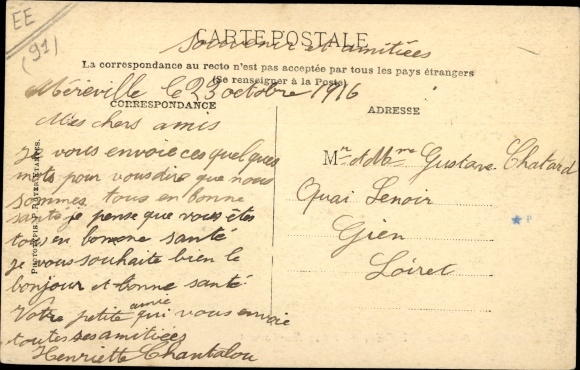 EE
(91)
CARTE POSTALE
Souvenir et amitiées
La correspondance au recto n'est pas acceptée par tous les pays étrangers
(Se renseigner à la Poste)
Méréville le 23 octobre 1916
CORRESPONDANCE
Mes chers amis
je vous envoie ces quelques
mots pour vous dire que nous
sommes tous en bonne
santé je pense que vous êtes
tous en bonne santé
je vous souhaite bien le
bonjour et bonne santé
Votre petite amie qui vous envoie
toutes ses amitiées
Henriette Chantalou
ADRESSE
Mr et Mme Gustave Chatard
Quai Lenoir
Gien
Loiret